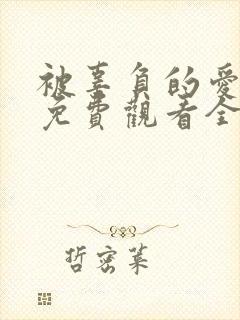 被辜負的愛
免費觀看全
哲密萊